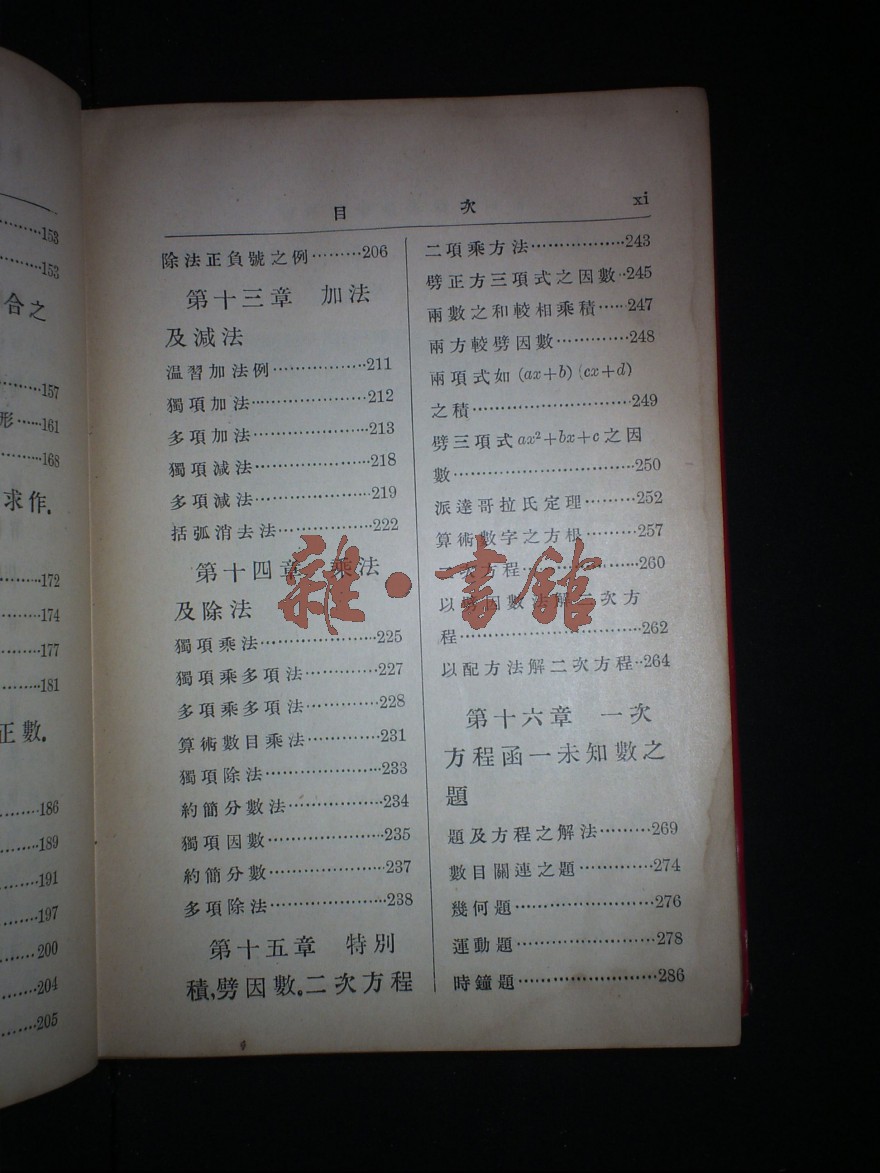 153
153
合之
157
形……161
168
求作.
172
174
177
181
正數.
186
189
191
197
200
204
205
目 次 xi
除法正負號之例………206
第十三章 加法
及減法
温習加法例……………211
獨項加法………………212
多項加法………………213
獨項減法………………218
多項減法………………219
括弧消去法……………222
第十四章 乘法
及除法
獨項乘法………………225
獨項乘多項法…………227
多項乘多項法…………228
算術數目乘法…………231
獨項除法………………233
約簡分數法……………234
獨項因數………………235
約簡分數………………237
多項除法………………238
第十五章 特別
積,劈因數。二次方程
二項乘方法……………243
劈正方三項式之因數‥245
兩數之和較相乘積……247
兩方較劈因數…………248
兩項式如 (ax+b) (cx+d)
之積……………………249
劈三項式 ax²+bx+c 之因
數………………………250
派達哥拉氏定理………252
算術數字之方根………257
二次方程………………260
以劈因數法解二次方
程………………………262
以配方法解二次方程‥264
第十六章 一次
方程函一未知數之
題
題及方程之解法………269
數目關連之題…………274
幾何題…………………276
運動題…………………278
時鐘題…………………286
雜·書館